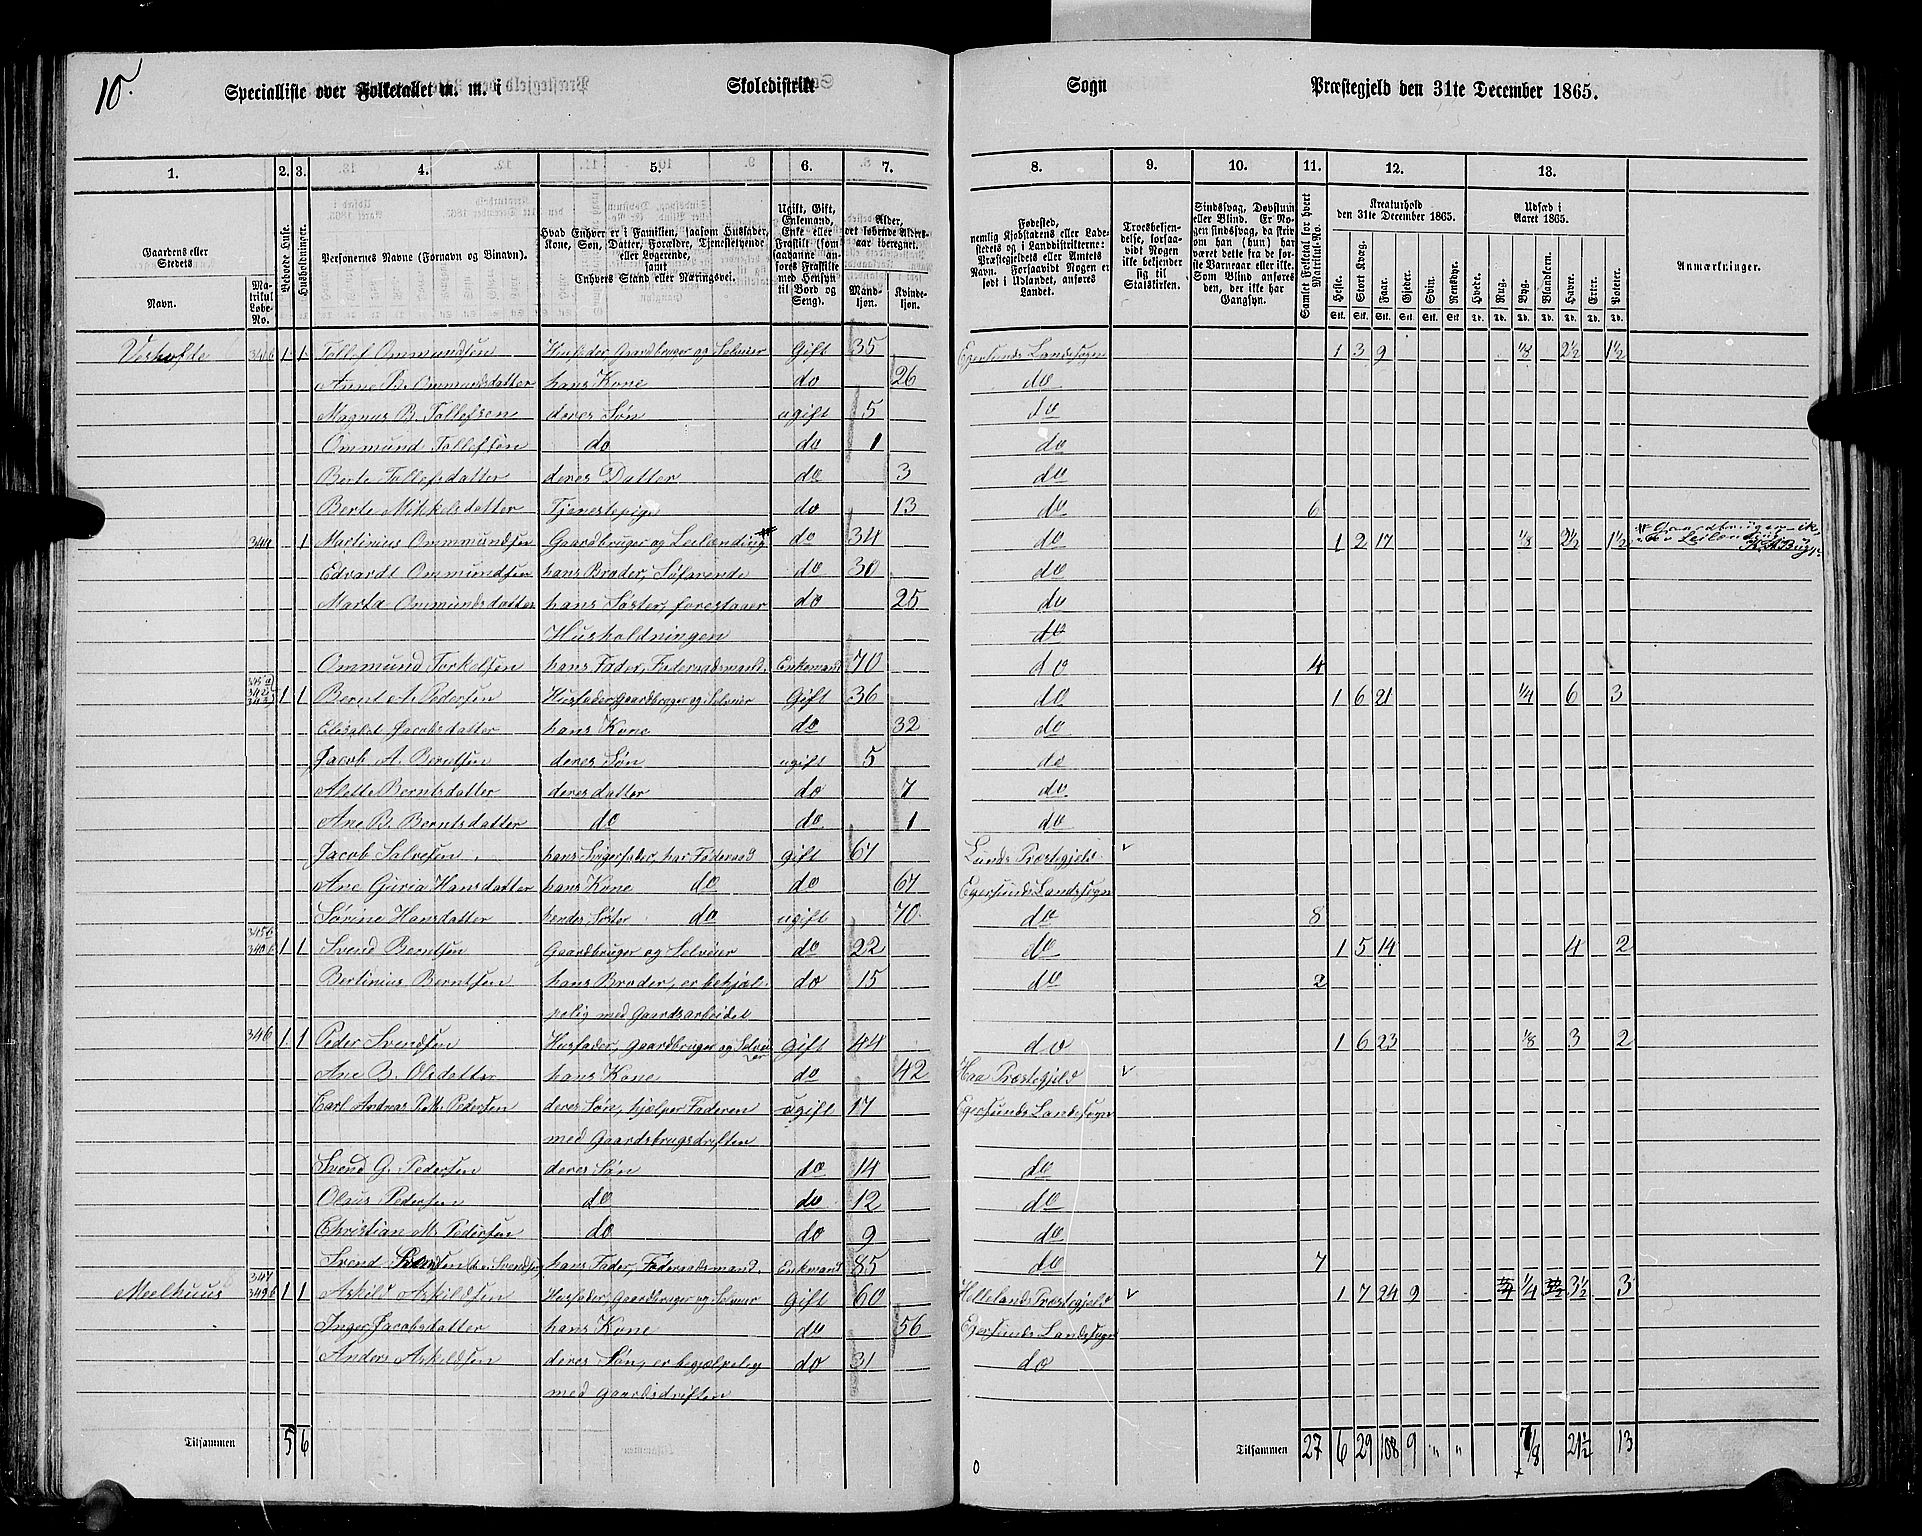 10.
Specialliste over Folketallet m. m. i Skoledistrikt Sogn Præstegjeld den 31te December 1865.
1. 2. 3. 4. 5. 6. 7. 8. 9. 10. 11. 12. 13.
Gaardens eller Stedets
Navn. Matrikul Løbe-No.
Beboede Huse.
Husholdninger.
Personernes Navne (Fornavn og Binavn).
Hvad Enhver er i Familien, saasom Husfader, Kone, Søn, Datter, Forældre, Tjenestetyende eller Logerende, samt Enhvers Stand eller Næringsvei.
Ugift, Gift, Enkemand, Enke eller Fraskilt (som saadanne anføres Fraskilte med Hensyn til Bord og Seng).
Alder, det løbende Aldersaar iberegnet.
Mandkjøn. Kvindekjøn.
Fødested, nemlig Kjøbstadens eller Ladestedets og i Landdistrikterne: Præstegjeldets eller Amtets Navn. Forsaavidt Nogen er født i Udlandet, anføres Landet.
Troesbekjendelse, forsaavidt Nogen ikke bekjender sig til Statskirken.
Sindssvag, Døvstum eller Blind. Er Nogen sindssvag, da skrives om han (hun) har været dette fra de første Barneaar eller ikke. Som Blind anføres den, der ikke har Gangsyn.
Samlet Folketal for hvert Matrikul-No.
Kreaturhold den 31te December 1865.
Heste. Stort Kvæg. Faar. Geder. Svin. Rensdyr.
Stk. Stk. Stk. Stk. Stk. Stk.
Udsæd i Aaret 1865.
Hvede. Rug. Byg. Blandkorn. Havre. Erter. Poteter.
Td. Td. Td. Td. Td. Td. Td.
Anmærkninger.
1 1 Tollef Ommundsen Husfader Gaardbruger og Selveier Gift 35 Egersunds Landsogn 1 3 9 1/8 2½ 1½
Anne B. Ommundsdatter hans Kone do 26 do
Magnus B. Tollefsen deres Søn ugift 5 do
Ommund Tollefsen do do 1 do
Berte Tollefsdatter deres Datter do 3 do
Berte Mikkelsdatter Tjenestepige do 13 do 6
344 1 Martinius Ommundsen Gaardbruger og Leilænding do 34 do 1 2 17 1/8 2½ 1½
Edvardt Ommundsen hans Broder, Søfarende do 30 do
Marta Ommundsdatter hans Søster, forestaaer do 25 do
Husholdningen do
Ommund Torkelsen hans Fader, Føderaadsmand. Enkemand 70 do 4
1 1 Bernt A. Pedersen Husfader Gaardbruger og Selveier Gift 36 do 1 6 21 1/4 6 3
Elisabet Jacobsdatter hans Kone do 32 do
Jacob A. Berntsen deres Søn ugift 5 do
Alette Berntsdatter deres datter do 7 do
Ane B. Berntsdatter do do 1 do
Jacob Salvesen hans Svigerfader, har Føderaad gift 67 Lunds Præstegjeld
Ane Guria Hansdatter hans Kone do do 67 Egersunds Landsogn
Sørine Hansdatter hendes Søster do ugift 70 do 8
1 1 Svend Berntsen Gaardbruger og Selveier do 22 do 1 5 14 4 2
Bertinius Berntsen hans Broder, er behjæl- do 15 do 2
pelig med Gaardsarbeidet
346 1 1 Peder Svendsen Husfader, Gaardbruger og Selveier Gift 44 do 1 6 23 1/8 3 2
Ane B. Olsdatter hans Kone do 42 Haa Præstegjeld
Carl Andreas Pedersen deres Søn, hjelper Faderen ugift 17 Egersunds Landsogn
med Gaardsbrugsdriften
Svend G. Pedersen deres Søn do 14 do
Olaus Pedersen do do 12 do
Christian M. Pedersen do do 9 do
Svend hans Fader, Føderaadsmand. Enkmand 85 do 7
Meelhuus 347 1 1 Askild Askildsen Husfader, Gaardbruger og Selveier Gift 60 Hellelands Præstegjeld 1 7 24 9 1/4 3½ 3
Inger Jacobsdatter hans Kone do 56 Egersunds Landsogn
Anders Askildsen deres Søn, er begjælpelig do 31 do
med Gaardsdriften
Tilsammen 5 6 Tilsammen 27 6 29 108 9 " " 7/8 21½ 13